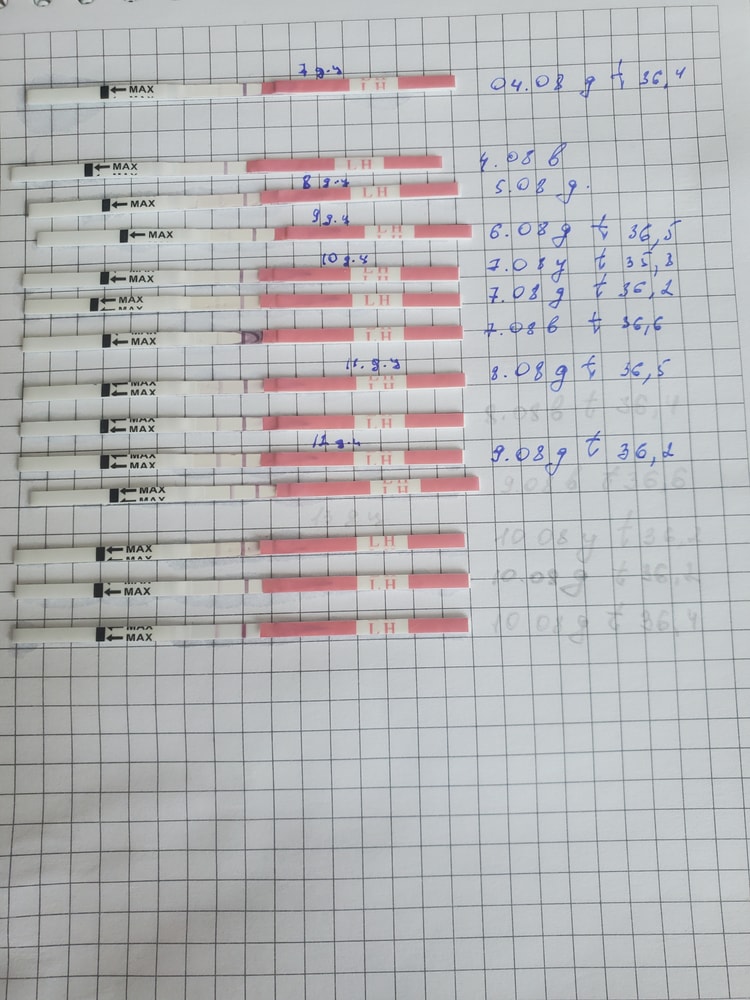 7 д.ц
MAX LH 04.08 д t 36,4
MAX LH 4.08 в
8 д.ц
MAX LH 5.08 д.
9 д.ц
MAX LH 6.08 д t 36,5
10 д.ц
MAX LH 7.08 у t 35,3
MAX LH 7.08 д t 36,2
MAX LH 7.08 в t 36,6
11 д.ц
MAX LH 8.08 д t 36,5
MAX LH 8.08 в t 36,4
12 д.ц
MAX LH 9.08 д t 36,2
MAX LH 9.08 в t 36,6
13 д.ц
MAX LH 10.08 у t 36,2
MAX LH 10.08 д t 36,2
MAX LH 10.08 д t 36,4